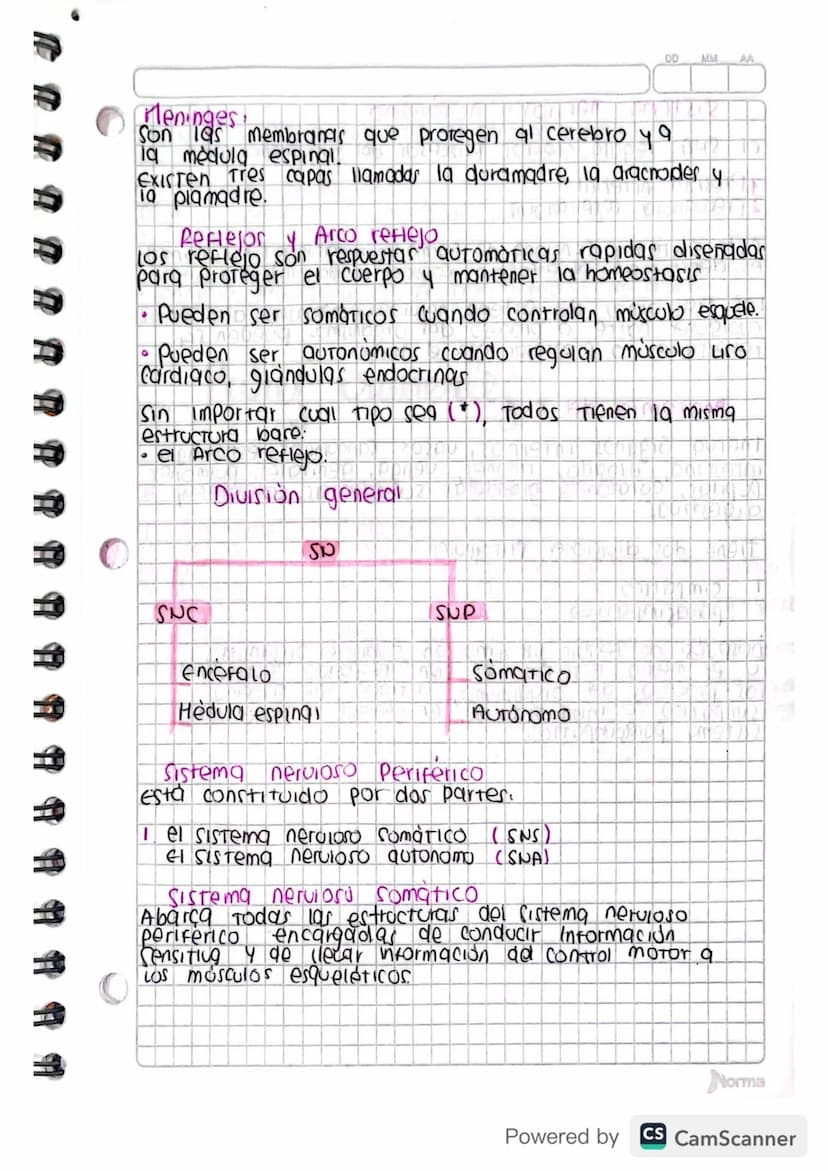 DD MM AA
Meninges:
Son las membranas que protegen al cerebro y a
la mèdula espinal.
Existen tres capas llamadas la duramadre, la aracnodes y
la piamadre.
Reflejos y Arco reflejo
Los reflejo son respuestas automàticas rapidas diseñadas
para proteger el cuerpo y mantener la homeostasis
• Pueden ser somàticos cuando controlan mùsculo esquele.
• Pueden ser autonòmicos cuando regulan mùsculo liso
cardiaco, glàndulas endocrinas
Sin importar cual tipo sea (*), todos tienen la misma
estructura base:
• el Arco reflejo.
Divisiòn general
SN
SNC SNP
Encèfalo Sòmatico
Mèdula espinal Autónomo
Sistema nervioso Periférico
Està constituido por dos partes.
1. el sistema nervioso somàtico (SNS)
el sistema nervioso autonomo (SNA)
Sistema nervioso Somàtico
Abarca todas las estructuras del sistema nervioso
periférico encargadas de conducir informaciòn
sensitiva y de llevar informaciòn del control motor a
los mùsculos esqueléticos.
Norma
Powered by CS CamScanner